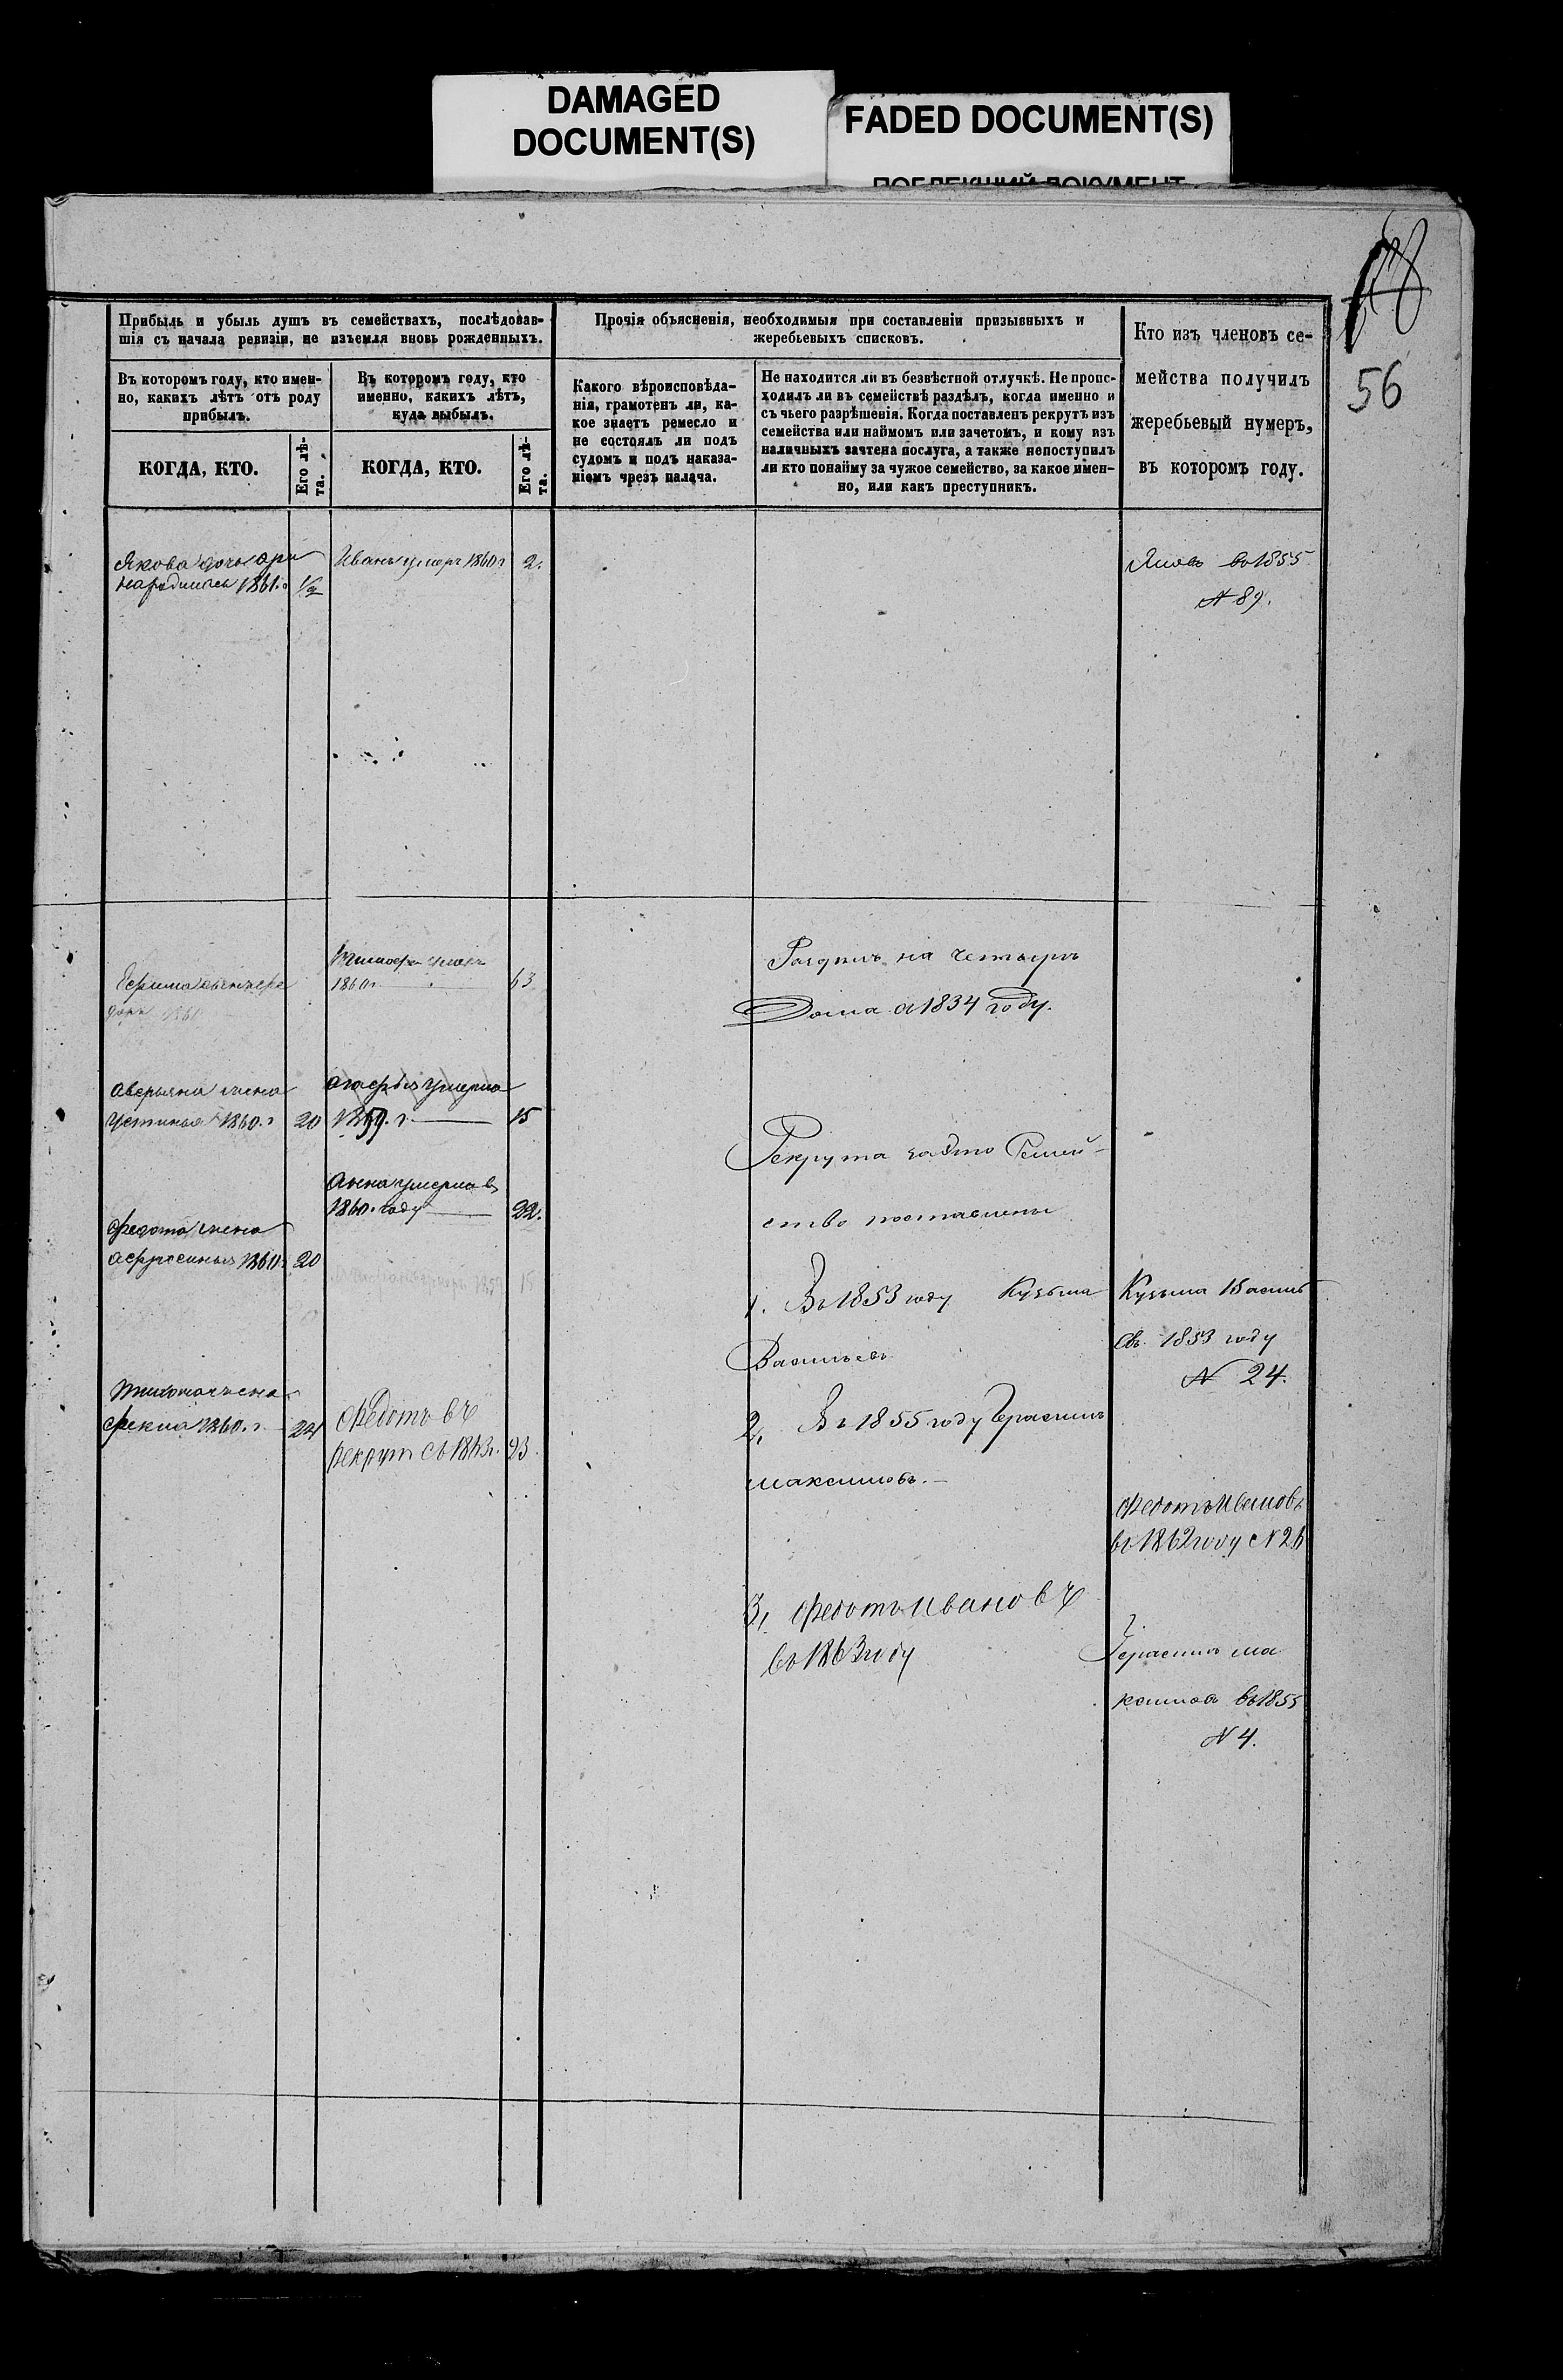 DAMAGED
DOCUMENT(S)
FADED DOCUMENT(S)
ПОБЛЕКШИЙ ДОКУМЕНТ
56
Прибыль и убыль душъ въ семействахъ, послѣдовав-
шія съ начала ревизіи, не изъемля вновь рожденныхъ.
Въ которомъ году, кто имен-
но, какихъ лѣтъ отъ роду
прибылъ.
КОГДА, КТО.
Его лѣ-
та.
Въ которомъ году, кто
именно, какихъ лѣтъ,
куда выбылъ.
КОГДА, КТО.
Его лѣ-
та.
Прочія объясненія, необходимыя при составленіи призывныхъ и
жеребьевыхъ списковъ.
Какого вѣроисповѣда-
нія, грамотенъ ли, ка-
кое знаетъ ремесло и
не состоялъ ли подъ
судомъ и подъ наказа-
ніемъ чрезъ палача.
Не находится ли въ безвѣстной отлучкѣ. Не проис-
ходилъ ли въ семействѣ раздѣлъ, когда именно и
съ чьего разрѣшенія. Когда поставленъ рекрутъ изъ
семейства или наймомъ или зачетомъ, и кому изъ
наличныхъ зачтена послуга, а также непоступилъ
ли кто понайму за чужое семейство, за какое имен-
но, или какъ преступникъ.
Кто изъ членовъ се-
мейства получилъ
жеребьевый нумеръ,
въ которомъ году.
Якова дочь
народилась 1861.г
Иванъ умеръ 1860 г 2.
Яковъ въ 1855
N 89.
1860 г. 63
Ефима
1861
Раздѣлъ на четыре
Дома в 1834 году.
Аверьяна жена
Устинья 1860. г 20
Агафья умерла
1859. г 15
Анна умерла въ
1860. году 22.
Федота жена
Афросинья 1860. г 20
15
Рекрута за это Семей-
ство поставлены
1. Въ 1853 году Кузьма
Васильевъ
2, Въ 1855 году Герасимъ
Максимовъ. –
3, Федотъ Ивановъ
въ 1863 году
Кузьма Василь
евъ 1853 году
N 24.
жена
Фекла 1860. г 24
Федотъ въ
рекрут съ 1863 г. 23
Федотъ Ивановъ
въ 1862 году N 26
Герасимъ Ма
ксимовъ въ 1855
N 4.